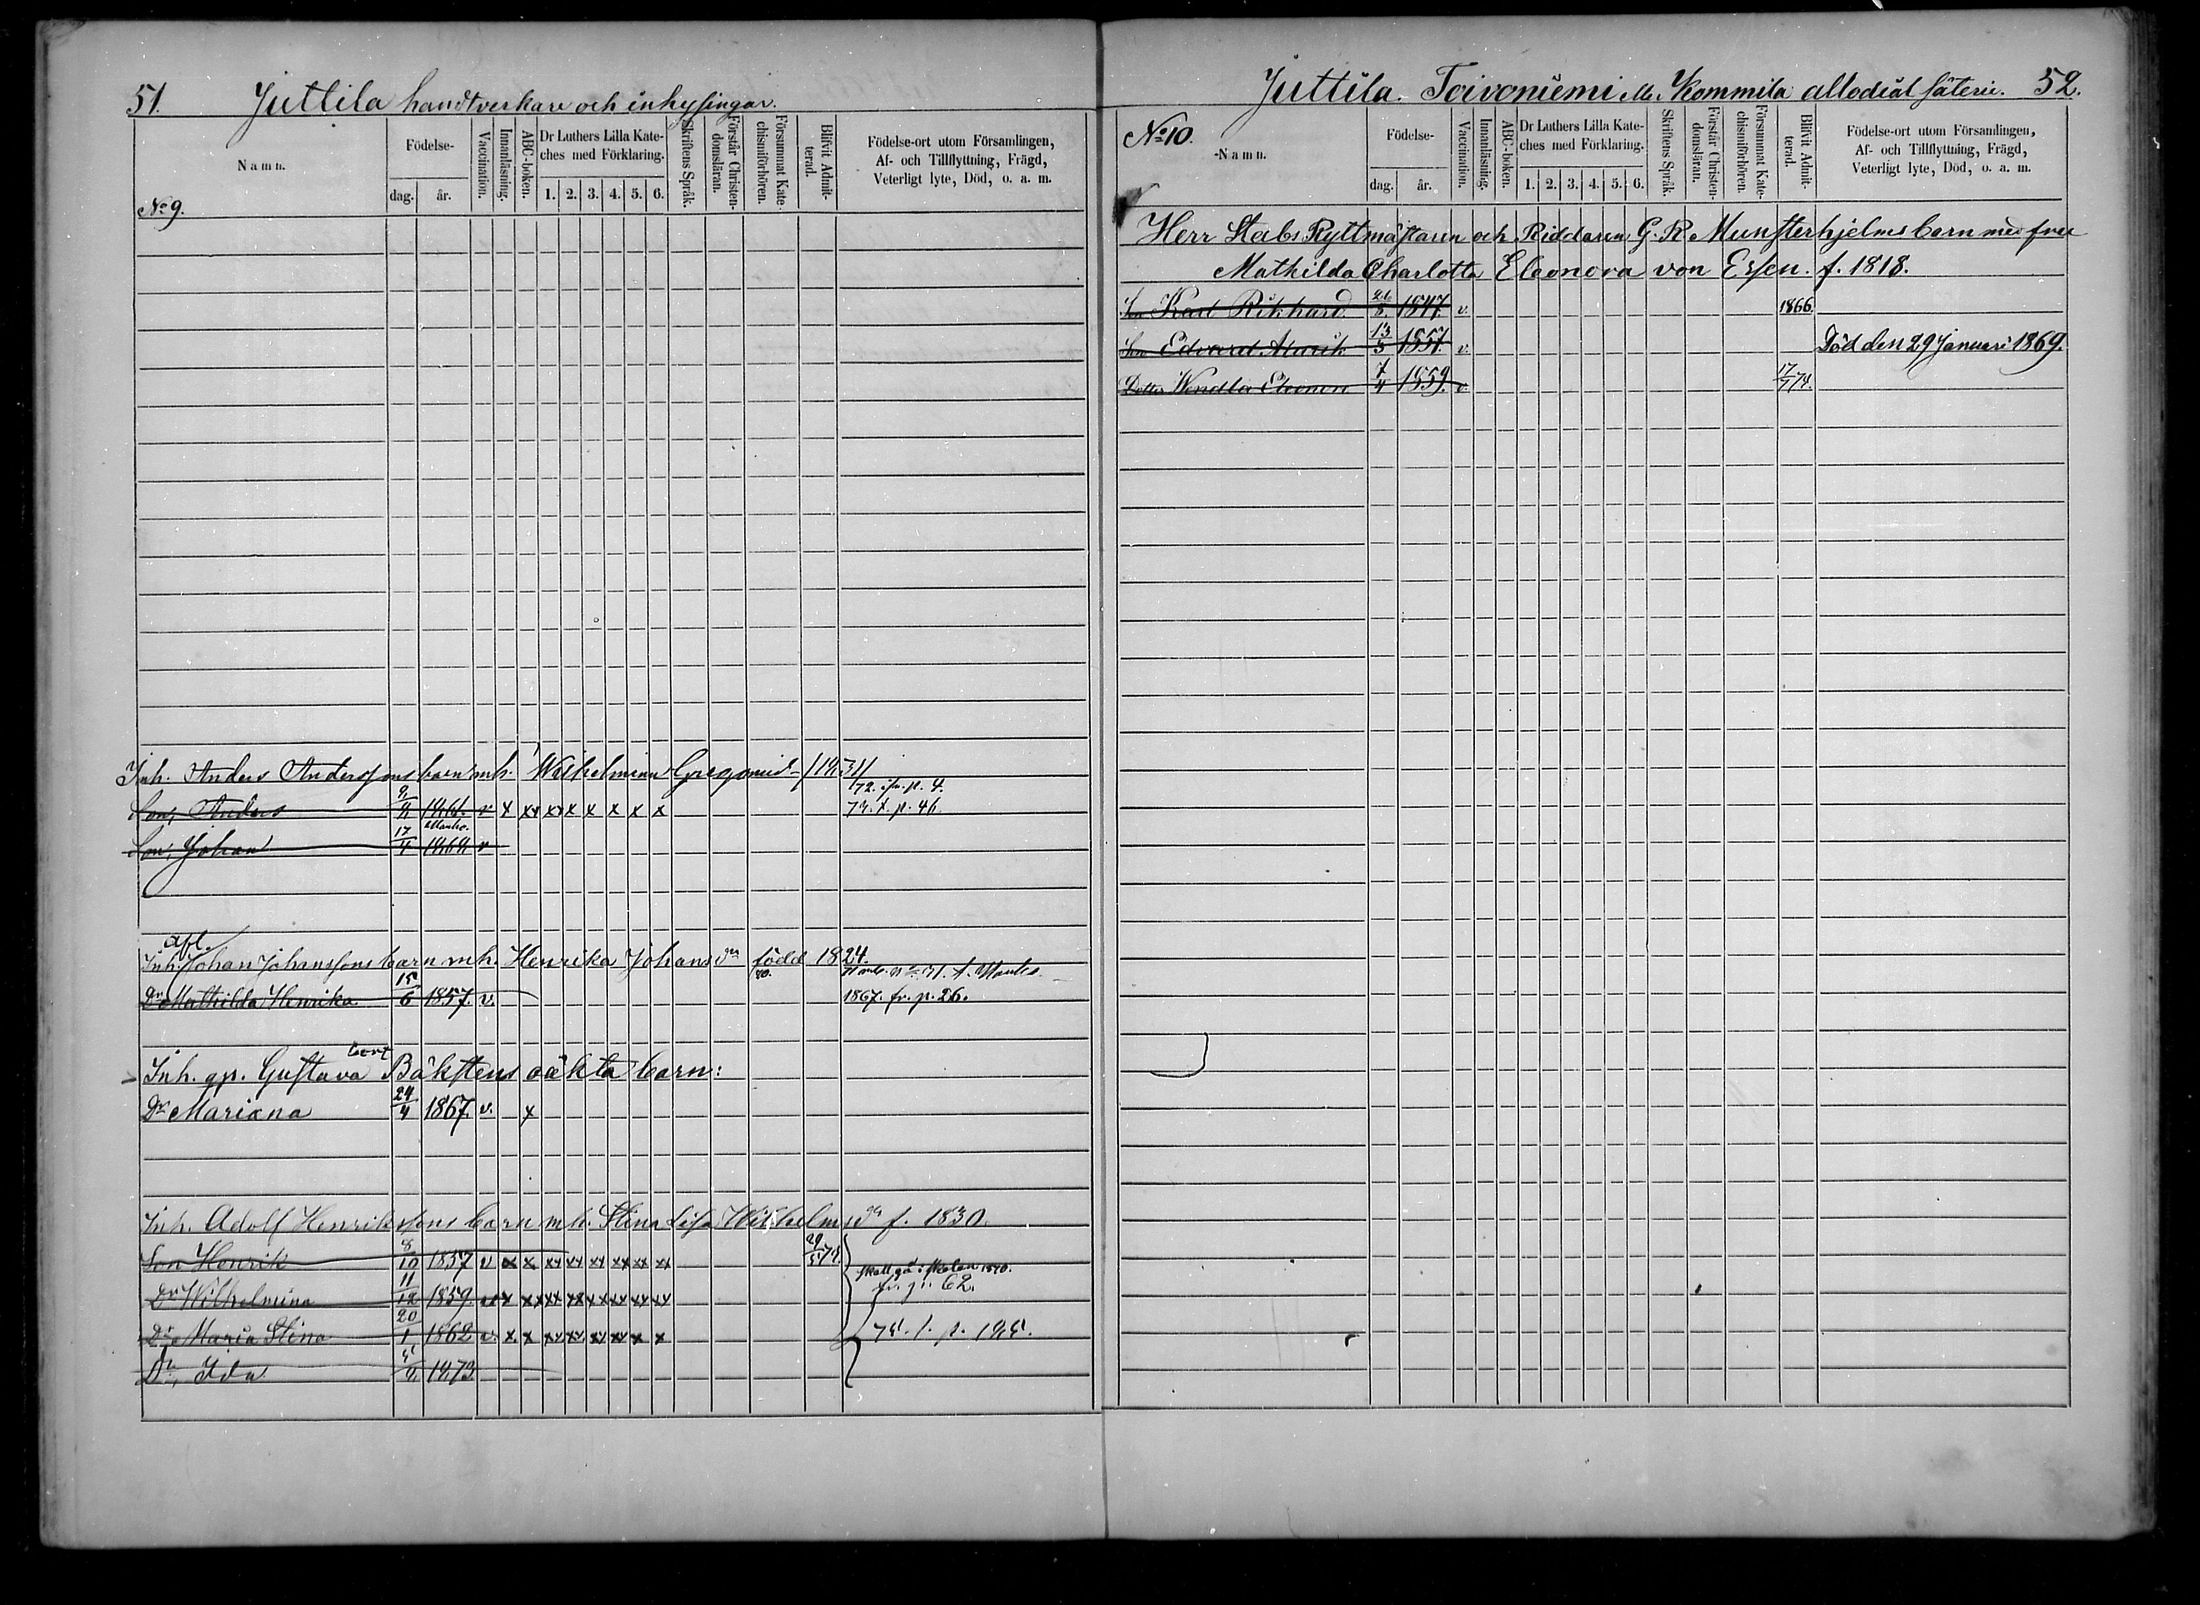 51. Juttila handtverkare och inhysingar.
Namn.
Födelse-
dag. år.
Vaccination.
Innanläsning.
ABC-boken.
Dr Luthers Lilla Kate-
ches med Förklaring.
1. 2. 3. 4. 5. 6.
Skriftens Språk.
Förstår Christen-
domsläran.
Försummat Kate-
chismiförhören.
Blifvit Admit-
terad.
Födelse-ort utom Församlingen,
Af- och Tillflyttning, Frägd,
Veterligt lyte, Död, o. a. m.
No 9.
Inh. Anders Anderssons barn m.h. Wilhelmina
72. p. 4.
Son, Anders 1861. v x xx xx x x x x x 73. t. p. 46.
Son, Johan 17/4 1868 v
afl.
Inh. Johan Johanssons barn m.h. Henrika Johansdr född 1824.
Dr Mathilda Henrika 15/6 1857. v. 1867. fr. p. 26.
bort
Inh. qp. Gustava Bäkstens oäkta barn:
Dr Mariana 24/4 1867. v. x
Inh. Adolf Henrikssons barn m.h. Stina Lisa Wilhelmsdr f. 1830.
Son Henrik 8/10 1857 v x x xx xx xx xx xx xx
skall gå i skolan 1870.
Dr Wilhelmina 11/12 1859. v x xx xx xx xx xx xx fr. p. 62.
Dr Maria Stina 20/1 1862 v. x. x xx xx xx xx x x 75. t. p.
Dr, Ida 1873
Juttila. Toivoniemi ell. Kommila allodial säteri. 52.
No 10.
Namn.
Födelse-
dag. år.
Vaccination.
Innanläsning.
ABC-boken.
Dr Luthers Lilla Kate-
ches med Förklaring.
1. 2. 3. 4. 5. 6.
Skriftens Språk.
Förstår Christen-
domsläran.
Försummat Kate-
chismiförhören.
Blifvit Admit-
terad.
Födelse-ort utom Församlingen,
Af- och Tillflyttning, Frägd,
Veterligt lyte, Död, o. a. m.
Herr Stabs Ryttmästaren och Riddaren G. R. Munsterhjelms barn med fru
Mathilda Charlotta Eleonora von Essen. f. 1818.
Son Karl Rikhard 1847. v. 1866.
Son Edvard Alarik 13/3 1857. v. Död den 29 Januari 1869.
Dotter Wendla Eleonora 7/4 1859. v. 17/7 74.